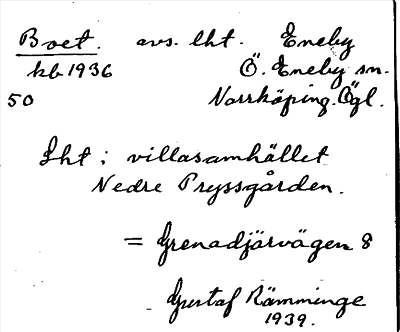 Boet. avs. lht. Eneby
kb 1936 Ö. Eneby sn.
50 Norrköping. Ögl.
Lht i villasamhället
Nedre Pryssgården.
= Grenadjärvägen 8
Gustaf Rämminge
1939.